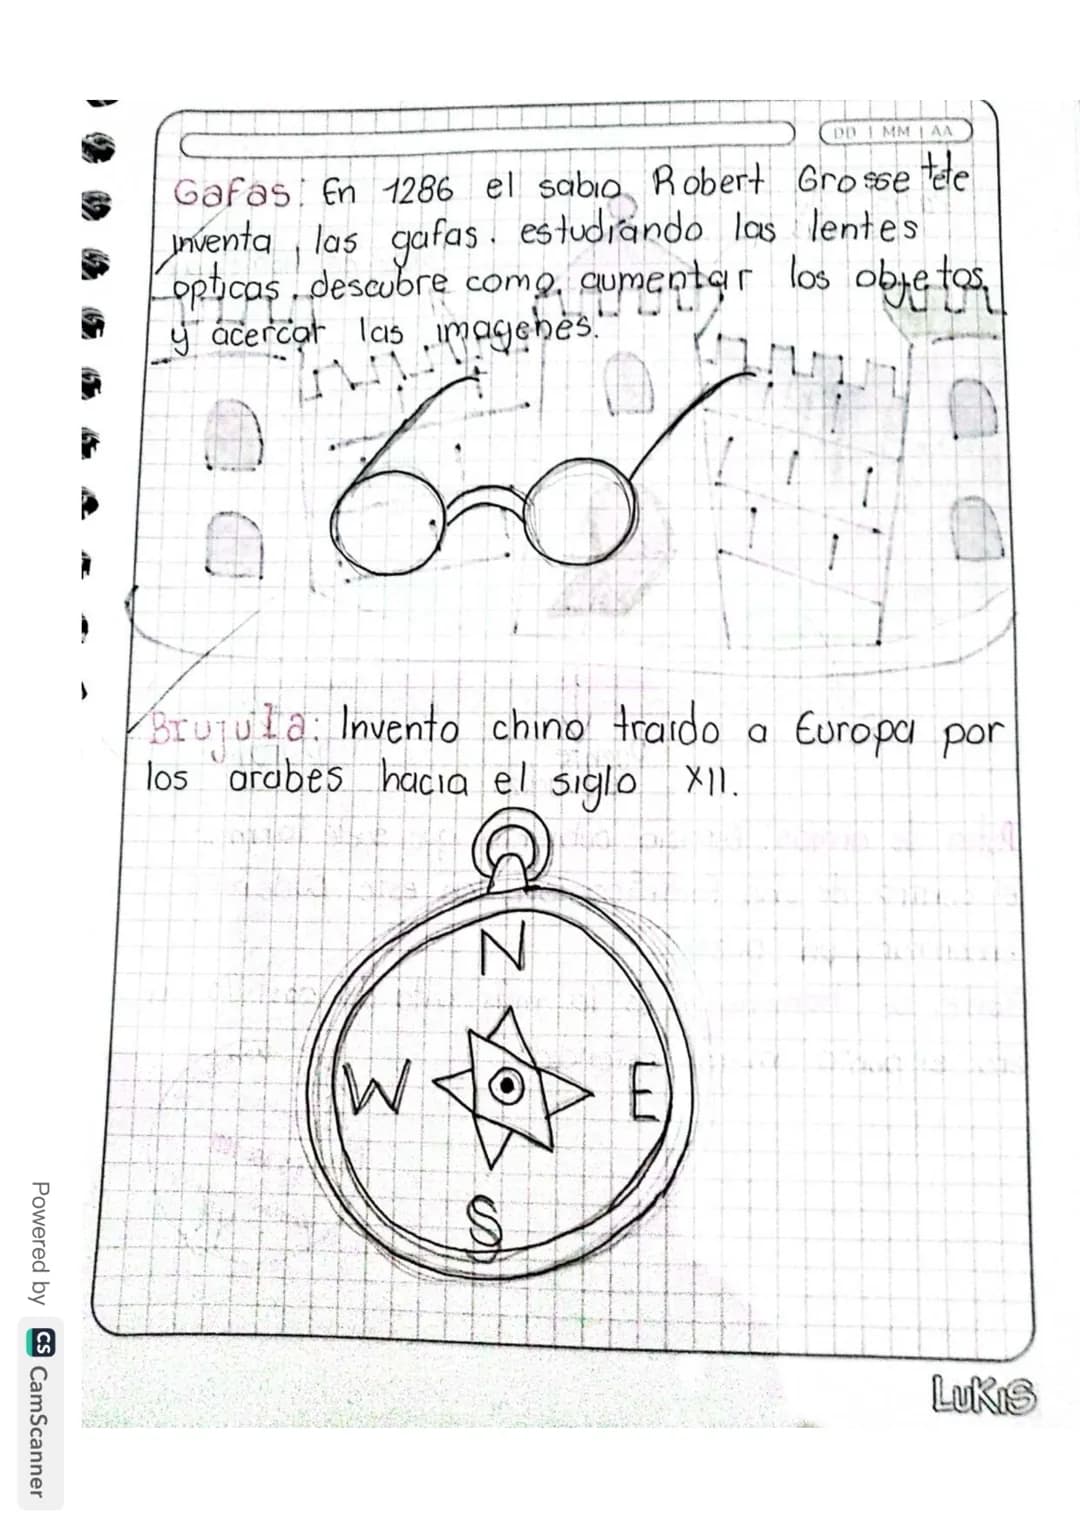 DD | MM | AA
Gafas: En 1286 el sabio Robert Grosse tete
inventa las gafas. estudiando las lentes
opticas, descubre como aumentar los objetos,
y acercar las imagenes.
Brujula: Invento chino traido a Europa por
los arabes hacia el siglo XII.
N
W E
S
LUKIS
Powered by CS CamScanner